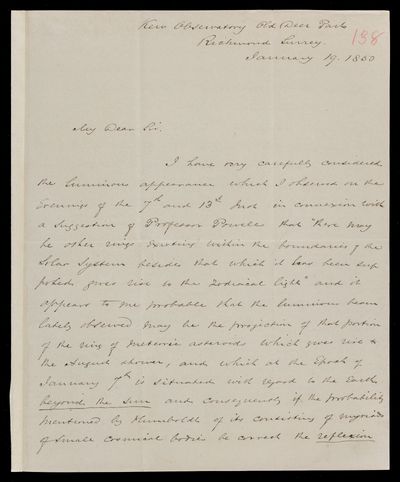 Kew Observatory Old Deer Park
Richmond Surrey.
138
January 19. 1850
My Dear Sir.
I have very carefully considered
the luminous appearance which I observed on the
Evenings of the 7th and 13th Inst in connexion with
a suggestion of Professor Powell that "there may
be other rings existing within the boundaries of the
Solar System besides that which it has been sup
posed gives rise to the Zodiacal light" and it
appears to me probable that the luminous beam
lately observed may be the projection of that portion
of the ring of meteoric asteroids which gives rise to
the August shower, and which at the Epoch of
January 7th is situated with regard to the Earth
beyond the sun and consequently if the probability
mentioned by Humboldt of its consisting of myriads
of small cosmical bodies be correct the reflexion